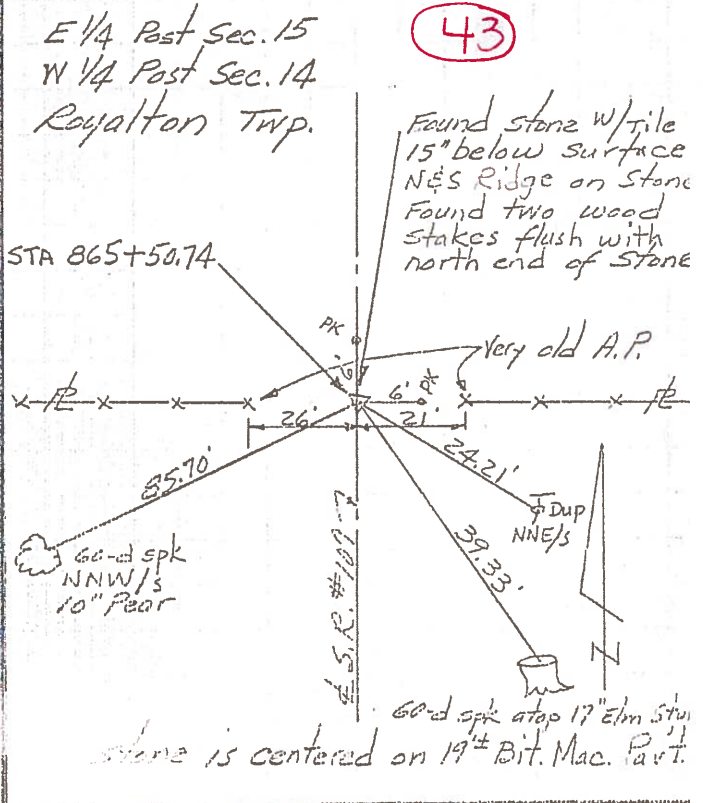 E 1/4 Post Sec. 15
W 1/4 Post Sec. 14
Royalton Twp.
43
Found stone W/Tile
15" below surface
N&S Ridge on Stone
Found two wood
stakes flush with
north end of Stone
STA 865+50.74
PK
6'
Very old A.P.
6'
PK
℄
26'
21'
℄
85.70'
24.21'
39.33'
Dup
NNE/s
60-d spk
NNW/s
10" Pear
℄ S.R. #109-7
N
60-d spk atop 17" Elm Stu
stone is centered on 19'± Bit. Mac. Pav't.